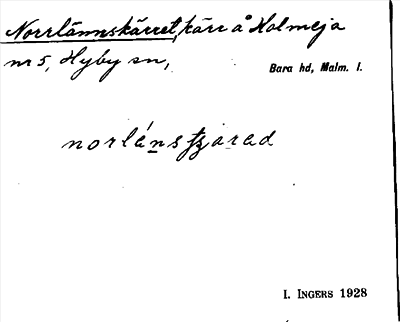 Norrlännskärret, kärr å Holmeja
nr 5, Hyby sn,
Bara hd, Malm. l.
norlánsʃʒarad
I. INGERS 1928